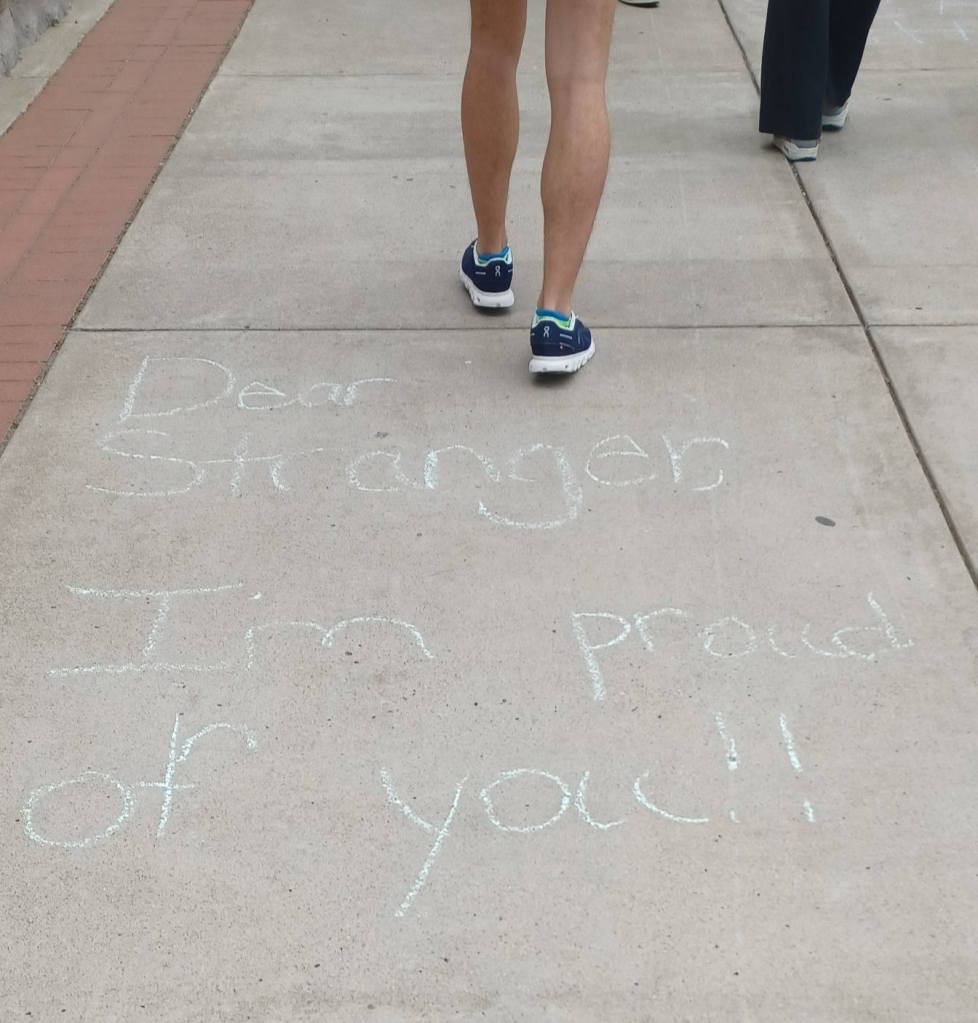 Dear
Stranger,
I'm proud
of you!!